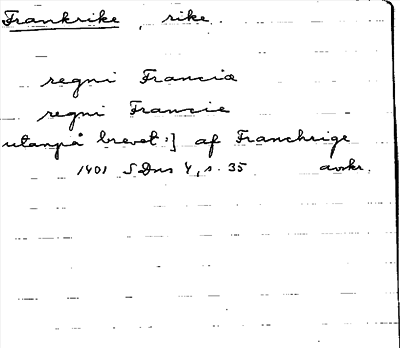 Frankrike, rike
regni Franciæ
regni Francie
utanpå brevet:] af Franchrige
1401 SDns 4, s. 35 avskr.